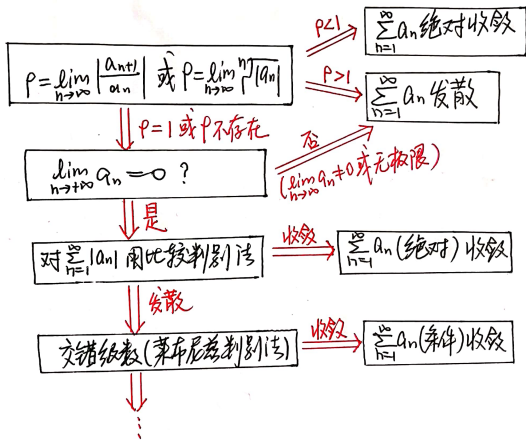 ρ<1
∑_{n=1}^{∞} aₙ 绝对收敛
ρ = lim_{n→∞} |aₙ₊₁/aₙ| 或 ρ = lim_{n→∞} ⁿ√|aₙ|
ρ>1
∑_{n=1}^{∞} aₙ 发散
ρ=1 或 ρ不存在
否
lim_{n→+∞} aₙ = 0 ?
(lim_{n→∞} aₙ≠0 或无极限)
是
对 ∑_{n=1}^{∞} |aₙ| 用比较判别法
收敛
∑_{n=1}^{∞} aₙ (绝对) 收敛
发散
交错级数(莱布尼兹判别法)
收敛
∑_{n=1}^{∞} aₙ (条件) 收敛
⋮